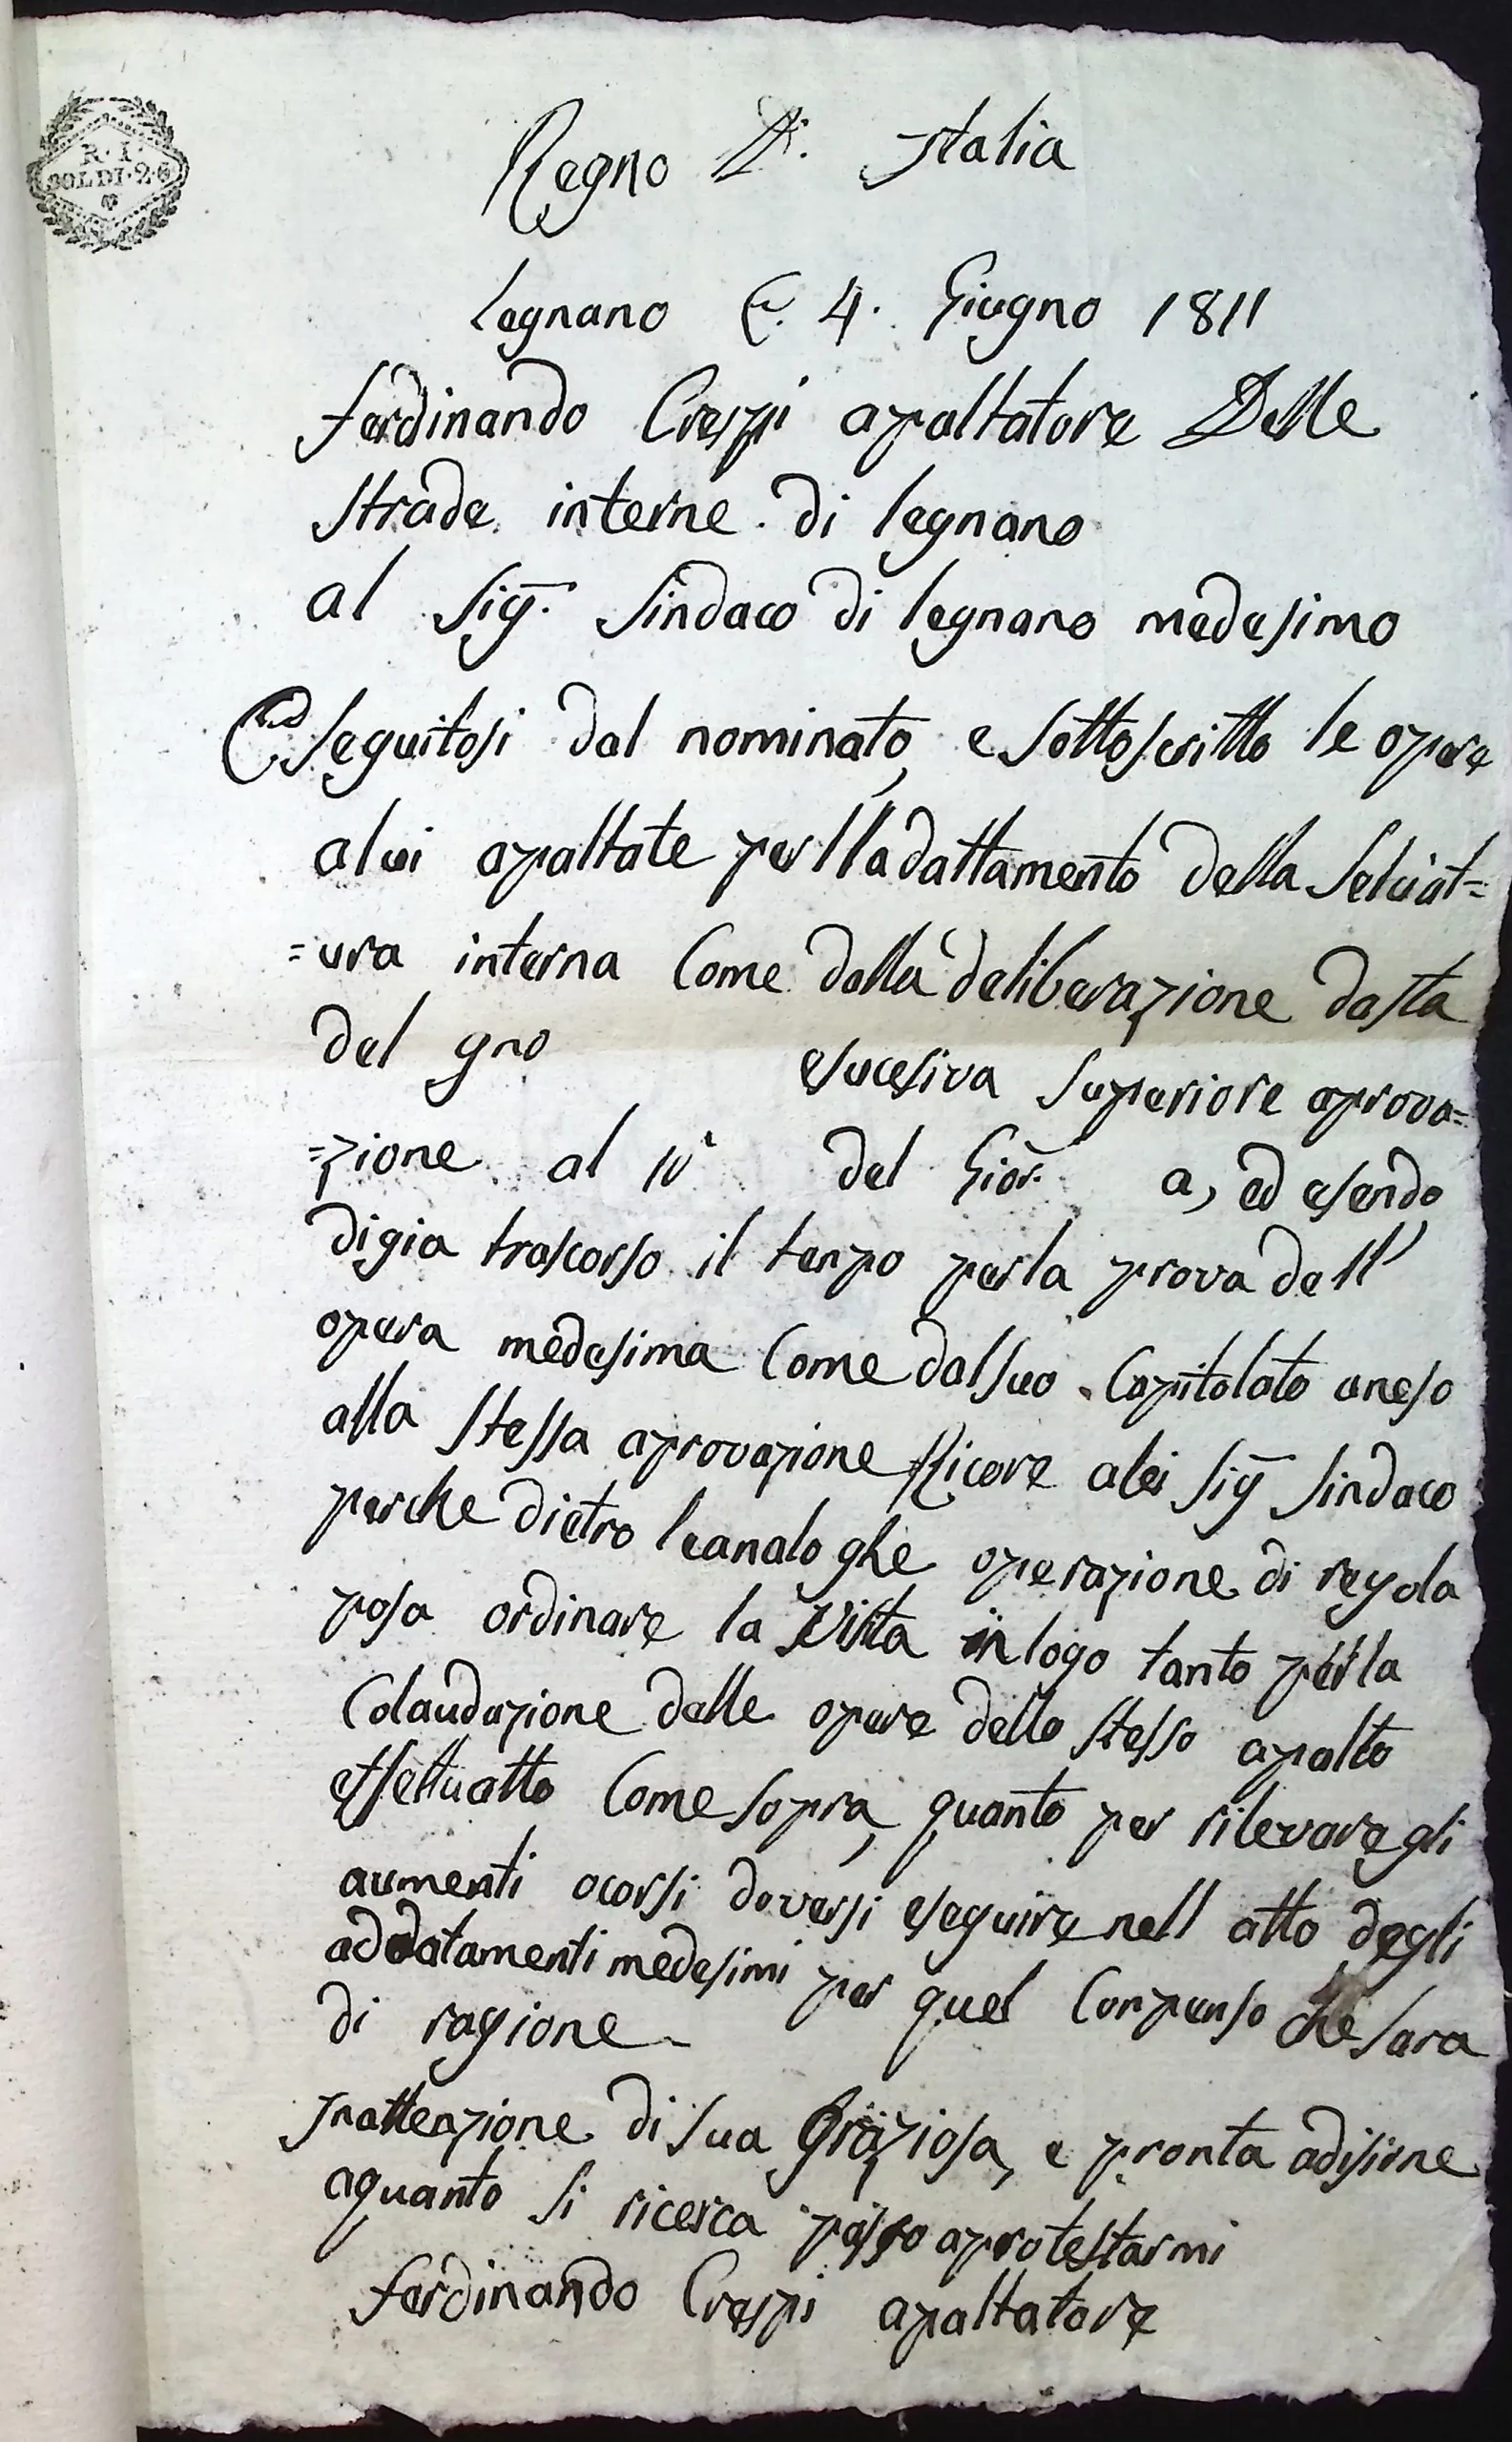 R. I.
SOLDI. 2.6
Regno D'. Italia
Legnano E. 4. Giugno 1811
Ferdinando Crespi apaltatore Delle
Strade interne di legnano
al Sig.r Sindaco di legnano medesimo
Eseguitosi dal nominato, e Sottoscritto le opere
alui apaltate perlladattamento della Selciat=
=ura interna Come dalla deliberazione dasta
del gno esucesiva Superiore aprova=
=zione al N° del Gior. a, ed esendo
digia trascorso il tenpo perla prova dell'
opera medesima Come dalsuo Capitolato aneso
alla Stessa aprovazione Ricore alei Sig Sindaco
perche dietro leanaloghe operazione di regola
posa ordinare la Visita in logo tanto perla
Colaudazione delle opere dello Stesso apalto
effettuatto Come Sopra, quanto per rilevare gli
aumenti ocorsi doversi eseguire nell atto degli
addatamenti medesimi per quel Conpenso che Sara
di ragione
Inattenzione di Sua Graziosa, e pronta adisione
aquanto Si ricerca posso aprotestarmi
Ferdinando Crespi apaltatore